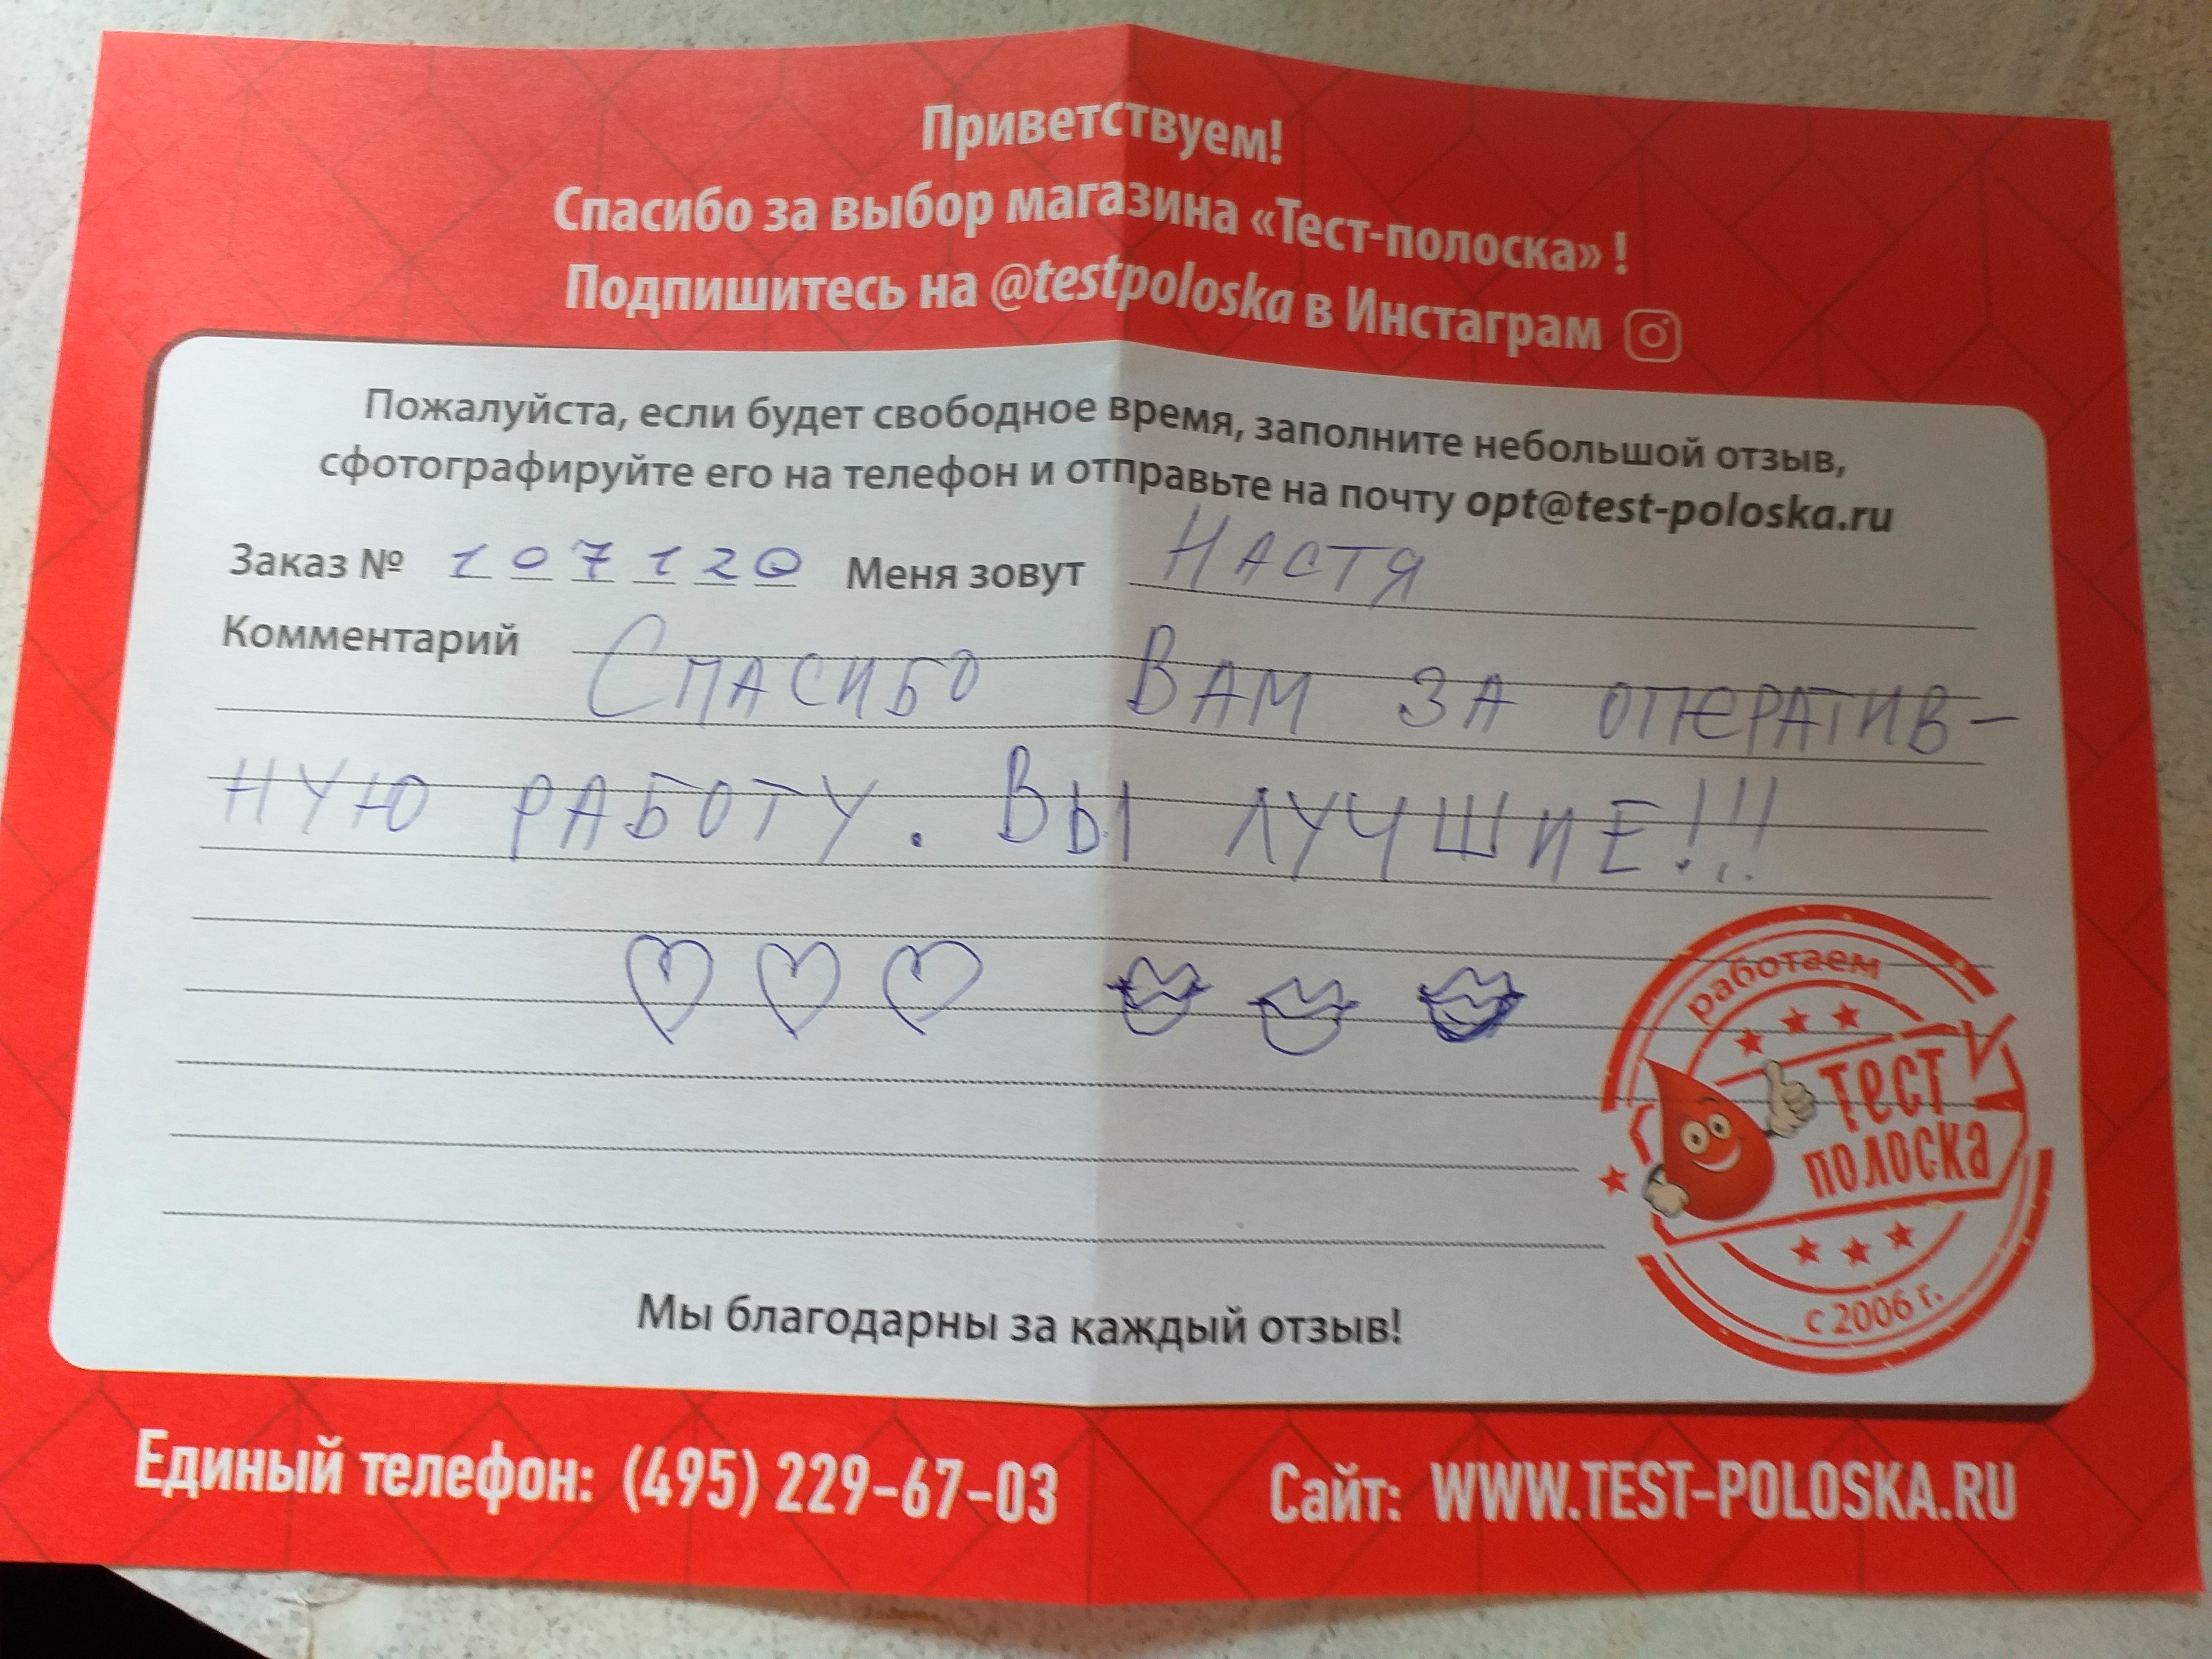 Приветствуем!
Спасибо за выбор магазина «Тест-полоска» !
Подпишитесь на @testpoloska в Инстаграм
Пожалуйста, если будет свободное время, заполните небольшой отзыв,
сфотографируйте его на телефон и отправьте на почту opt@test-poloska.ru
Заказ № 107120 Меня зовут НАСТЯ
Комментарий СПАСИБО ВАМ ЗА ОПЕРАТИВ-
НУЮ РАБОТУ. ВЫ ЛУЧШИЕ!!!
работаем
Тест
полоска
с 2006 г.
Мы благодарны за каждый отзыв!
Единый телефон: (495) 229-67-03 Сайт: WWW.TEST-POLOSKA.RU